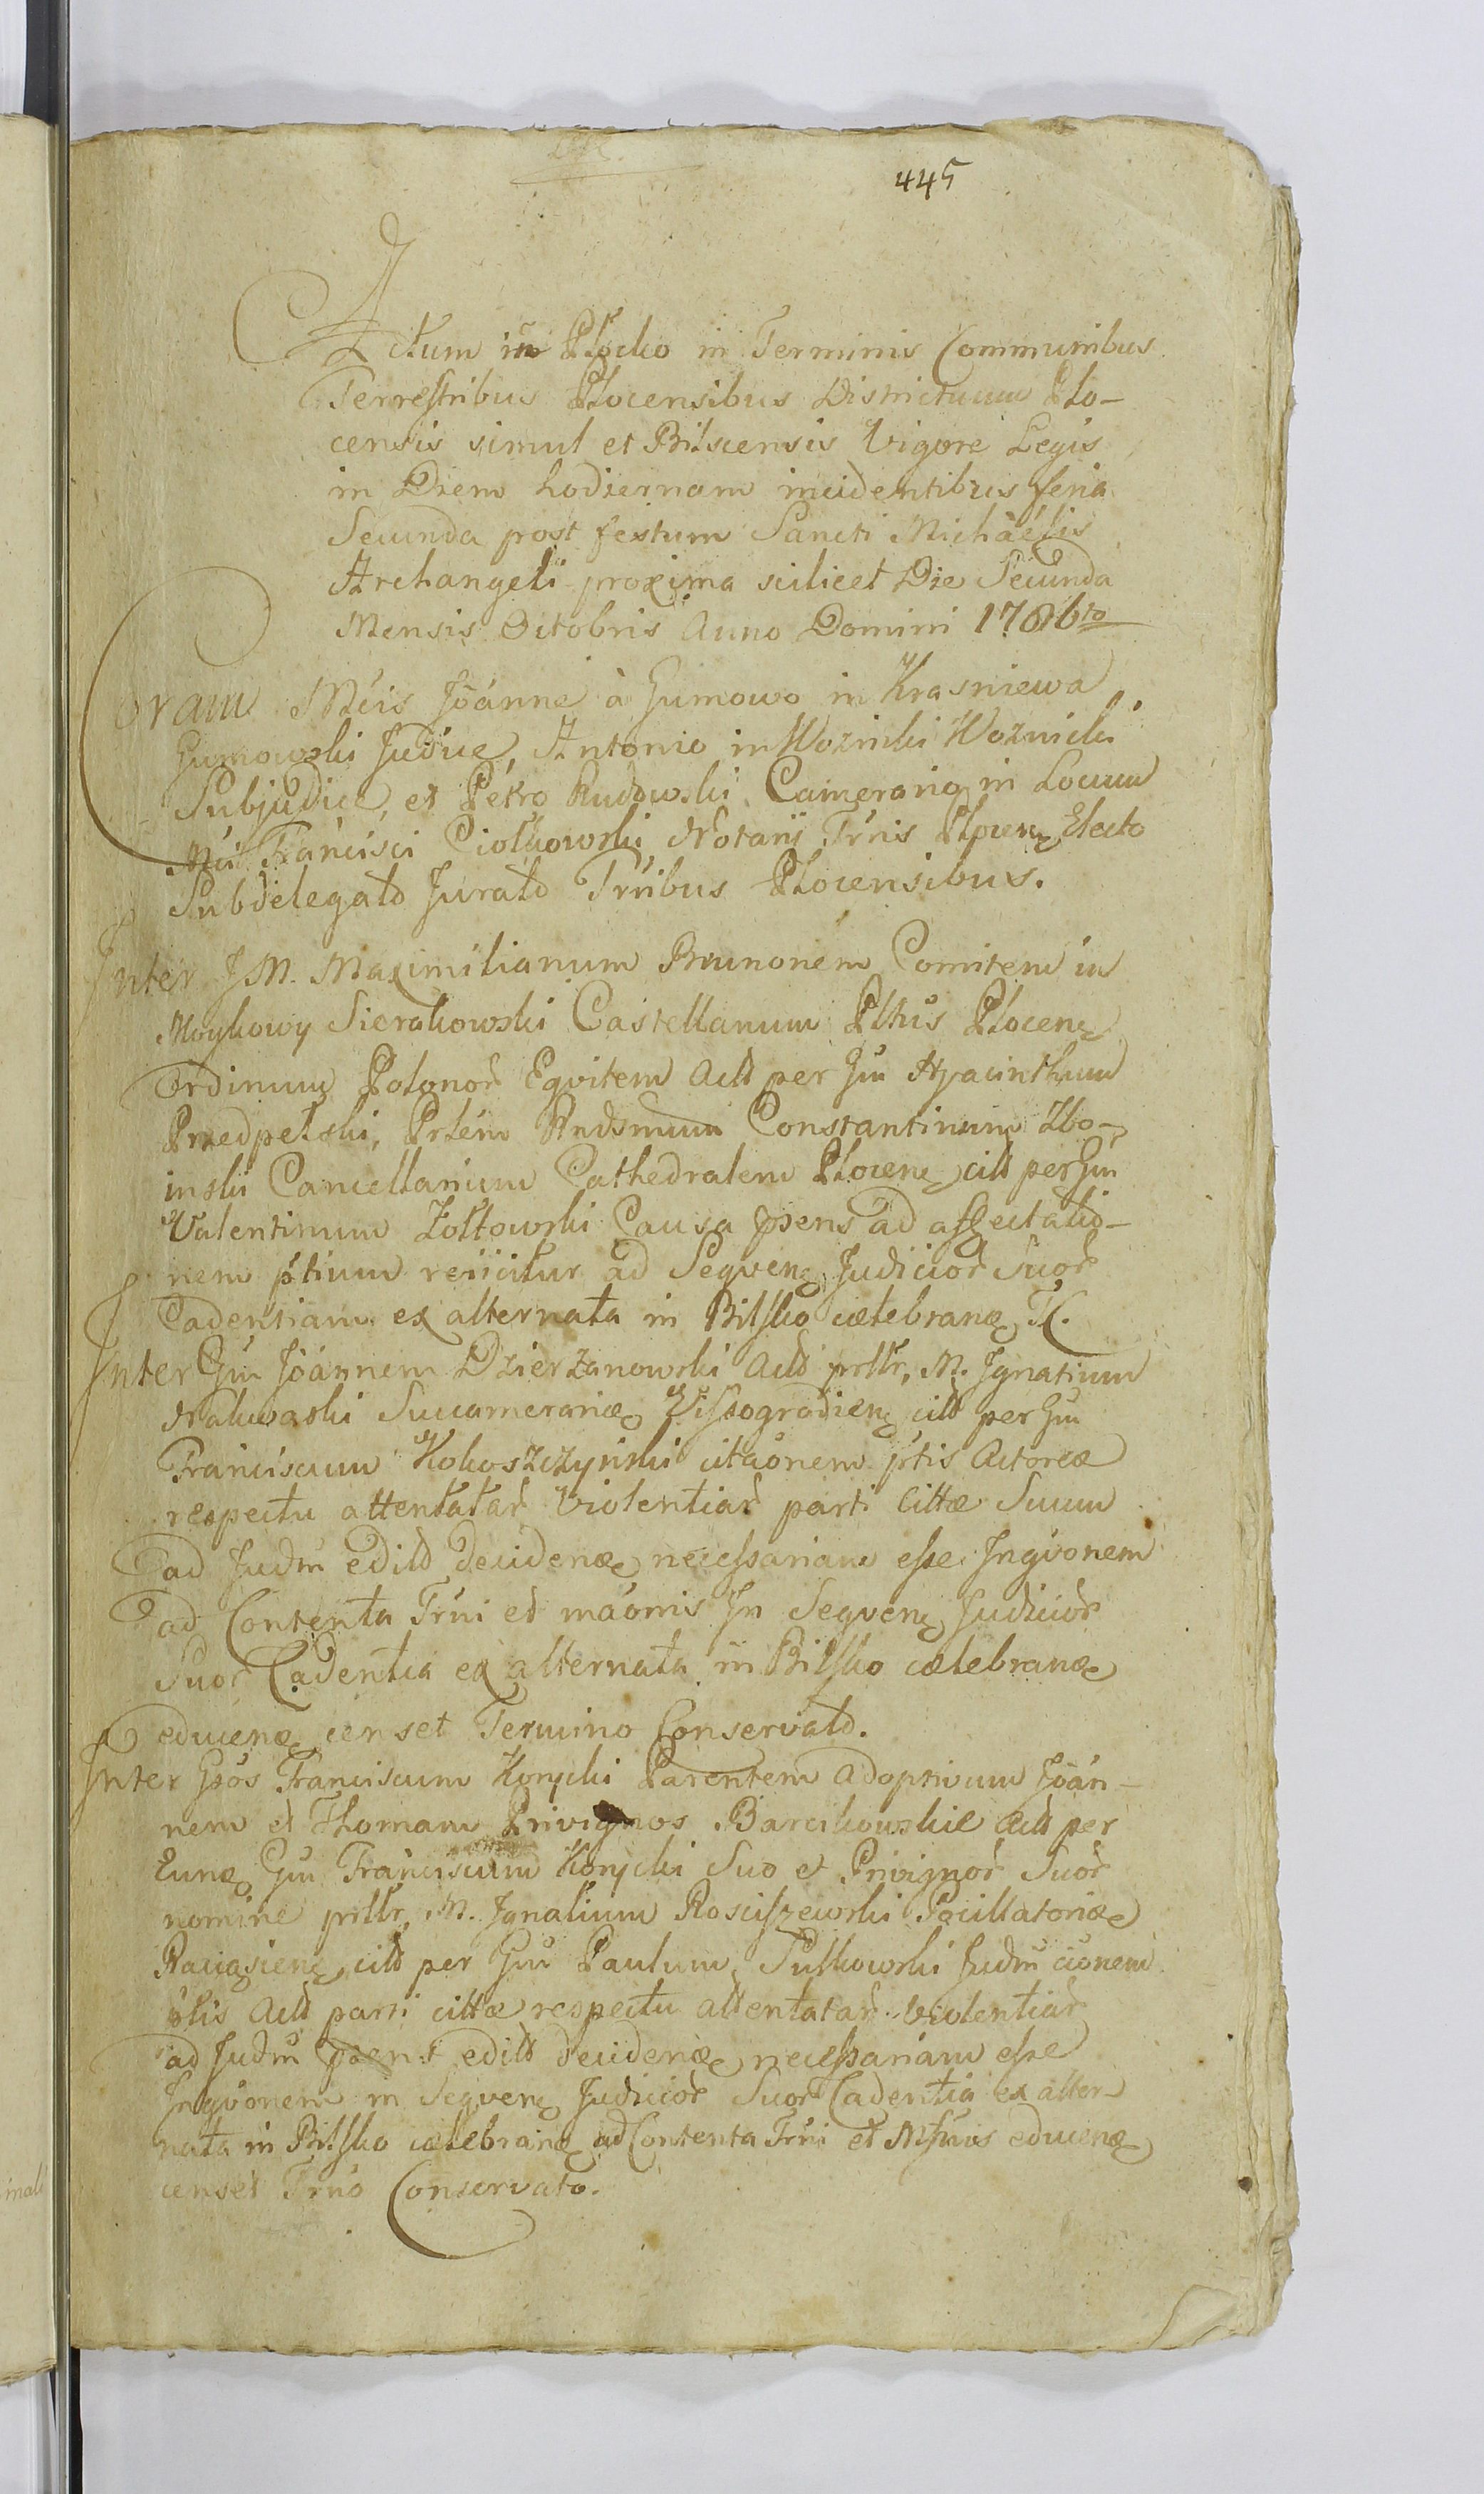 445
Actum in Płocko in Terminis Communibus
Terrestribus Plocensibus Districtuum Plo-
censis simul et Bilscensis Vigore Legis
in Diem hodiernam incidentibus feria
Secunda post festum Sancti Michäelis
Archangeli proxima scilicet Die Secunda
Mensis Octobris Anno Domini 1786to
Coram Mcis Joánne à Gumowo in Krasniewa
Gumowski Judice, Antonio in Woznicki Woznicki
Subjudice, et Petro Rudowski Camerario in Locum
Mci Francisci Ciołkowski Notarij Trris Plocen Electo
Subdelegato Jurato Trribus Plocensibus.
Inter J M. Maximilianum Brunonem Comitem in
Moykowy Sierakowski Castellanum Pltus Plocen
Ordinum Polonor Eqvitem Actt per Gm Hyacinthum
Przedpelski, Prtem Rndsmum Constantinum Zbo-
inski Cancellarium Cathedralem Plocen citt per Gm
Valentinum Zołtowski Causa psens ad affectatio-
nem ptium reiicitur ad Seqven Judicior Suor
Cadentiam ex alternata in Bilsko celebran T C.
Inter Gm Joánnem Dzierzanowski Actt prttr, M. Ignatium
Nakwaski Succamerarie Vissogradien citt per Gm
Franciscum Kokoszczynski citáonem ptis Actoreæ
respectu attentatar Violentiar parti Cittæ Suum
ad Judm edito decidenæ necessariam esse Inqvonem
ad Contenta Trni et máonis In Seqven Judicior
Suor Cadentia ex alternata in Bilsko celebranæ
educenæ censet Termino Conservato.
Inter Gsos Franciscum Konycki Parentem adoptivum Joán-
nem et Thomam Privignos Barcikowskie Actt per
Eunæ Gm Franciscum Konycki Suo et Privignor Suor
nomine prttr, M. Ignatium Rosciszewski Pocillatoriæ
Raciasien citt per Gm Paulum Sułkowski Judm cionem
ptis Actt parti cittæ respectu attentatar violentiar
ad Judm psens edito decidenæ necessariam esse
Inqvonem in Seqven Judicior Suor Cadentia ex alter-
nata in Bilsko celebranæ ad Contenta Trni et educenæ
censet Trno Conservato.